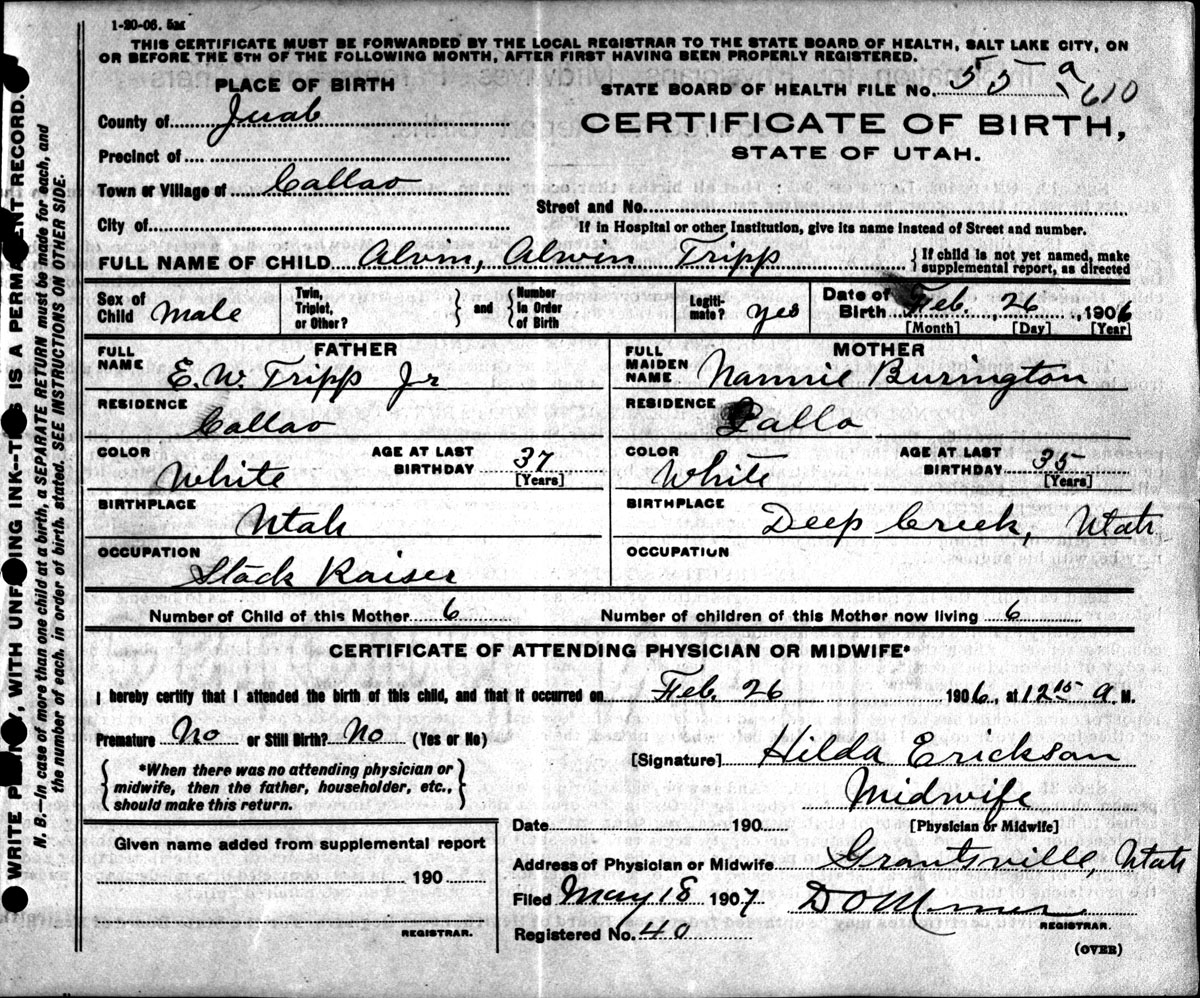 1-20-06. 5M
THIS CERTIFICATE MUST BE FORWARDED BY THE LOCAL REGISTRAR TO THE STATE BOARD OF HEALTH, SALT LAKE CITY, ON
OR BEFORE THE 5TH OF THE FOLLOWING MONTH, AFTER FIRST HAVING BEEN PROPERLY REGISTERED.
PLACE OF BIRTH
STATE BOARD OF HEALTH FILE No. 55 a 610
County of Juab
CERTIFICATE OF BIRTH,
STATE OF UTAH.
Precinct of
Town or Village of Callao
Street and No.
City of
If in Hospital or other Institution, give its name instead of Street and number.
FULL NAME OF CHILD Alvin, Alwin Tripp
{ If child is not yet named, make
supplemental report, as directed
Sex of Child Male
Twin, Triplet, or Other? } and { Number in Order of Birth
Legitimate? yes
Date of Birth Feb. 26, 1906
[Month] [Day] [Year]
FATHER
FULL NAME E. W. Tripp Jr
RESIDENCE Callao
COLOR White
AGE AT LAST BIRTHDAY 37 [Years]
BIRTHPLACE Utah
OCCUPATION Stock Raiser
MOTHER
FULL MAIDEN NAME Nannie Burington
RESIDENCE Callo
COLOR White
AGE AT LAST BIRTHDAY 35 [Years]
BIRTHPLACE Deep Creek, Utah
OCCUPATION
Number of Child of this Mother 6 Number of children of this Mother now living 6
CERTIFICATE OF ATTENDING PHYSICIAN OR MIDWIFE*
I hereby certify that I attended the birth of this child, and that it occurred on Feb. 26 1906, at 12 15 a M.
Premature No or Still Birth? No (Yes or No)
[Signature] Hilda Erickson
{ *When there was no attending physician or
midwife, then the father, householder, etc.,
should make this return. }
Midwife
[Physician or Midwife]
Date 190
Given name added from supplemental report
190
REGISTRAR.
Address of Physician or Midwife Grantsville, Utah
Filed May 18 1907
REGISTRAR.
Registered No. 40
(OVER)
WRITE PLAINLY, WITH UNFADING INK--THIS IS A PERMANENT RECORD.
N. B. In case of more than one child at a birth, a SEPARATE RETURN must be made for each, and
the number of each, in order of birth, stated. SEE INSTRUCTIONS ON OTHER SIDE.